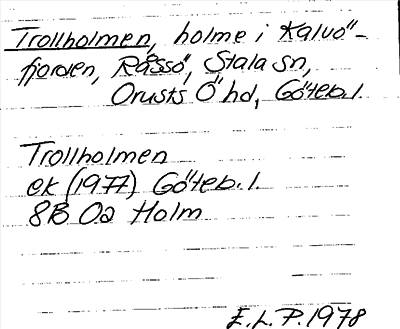 Trollholmen, holme i Kalvö-
fjorden, Råssö, Stala sn,
Orusts Ö hd, Göteb.l.
Trollholmen
ek (1977) Göteb.l.
8B 0a Holm
E.L.P.1978